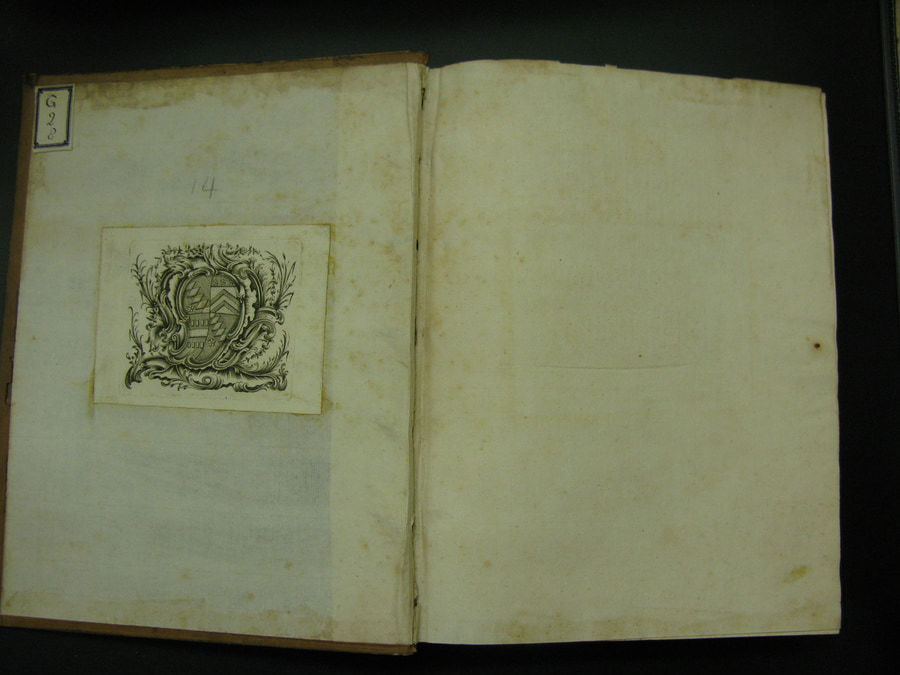 G
2
8
14